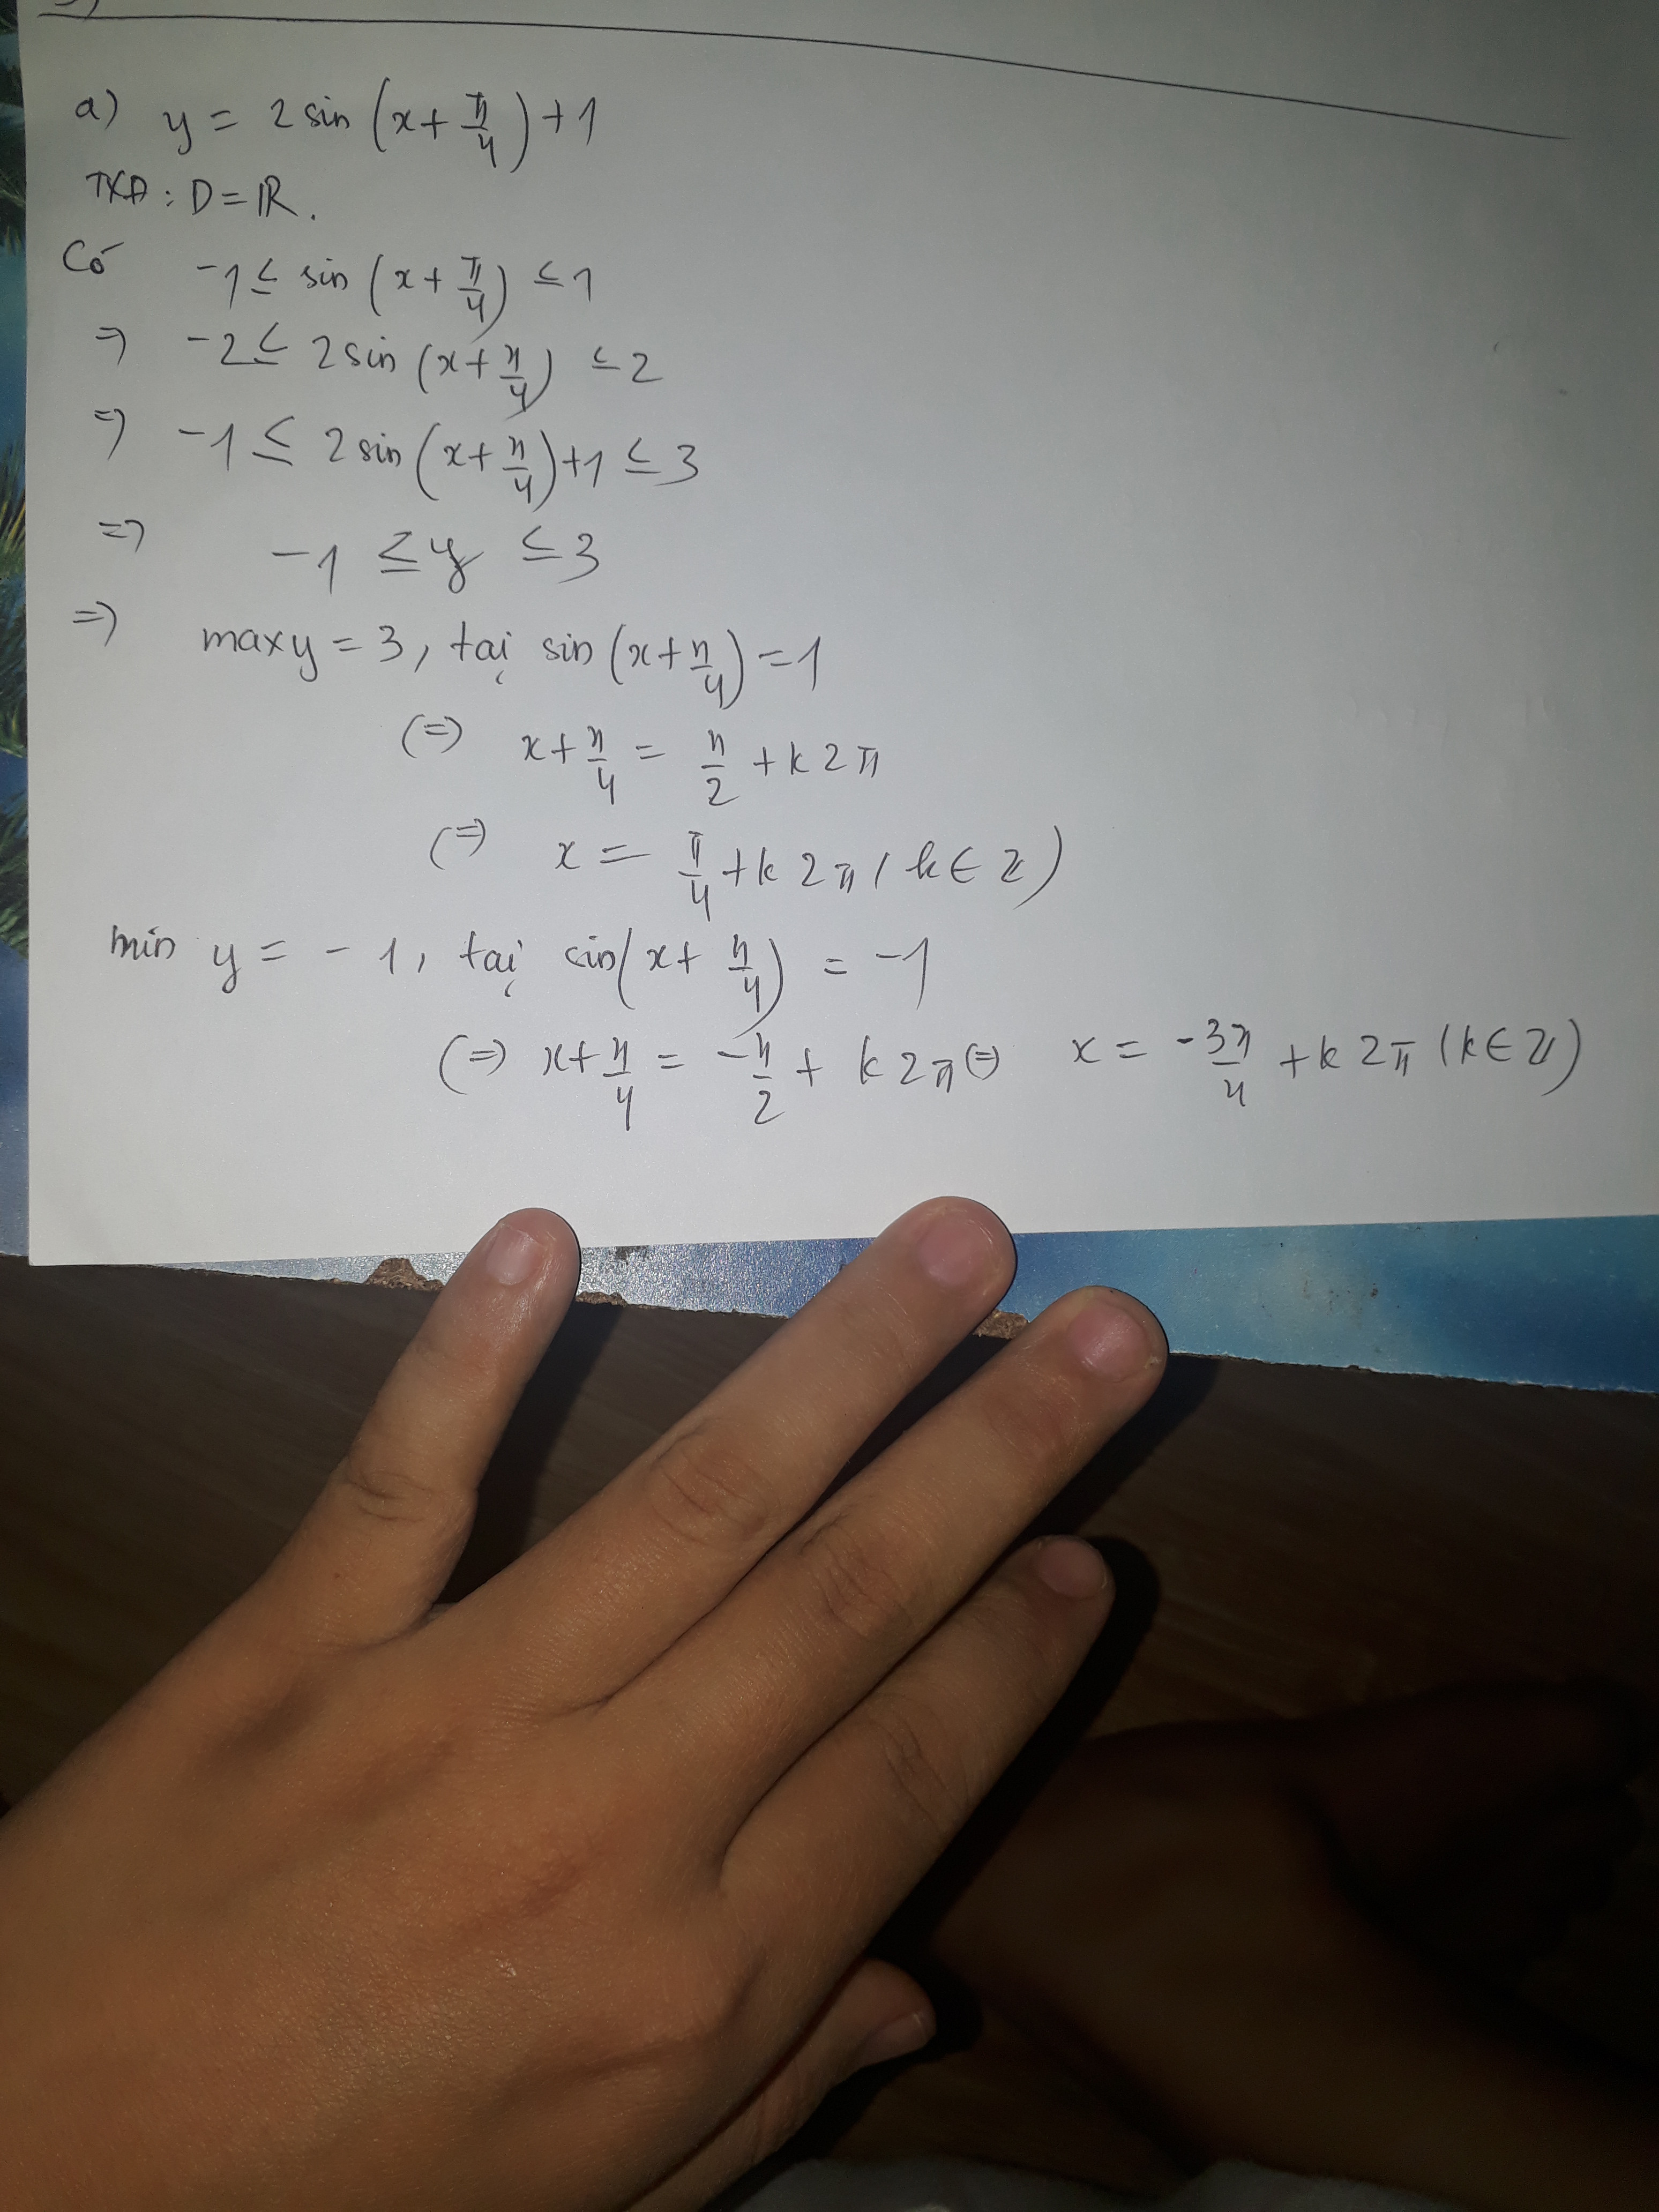 a) y = 2 sin (x + π/4) + 1
TXĐ : D = ℝ.
Có -1 ≤ sin (x + π/4) ≤ 1
=> -2 ≤ 2 sin (x + π/4) ≤ 2
=> -1 ≤ 2 sin (x + π/4) + 1 ≤ 3
=> -1 ≤ y ≤ 3
=> max y = 3, tại sin (x + π/4) = 1
(=) x + π/4 = π/2 + k2π
(=) x = π/4 + k2π (k ∈ ℤ)
min y = -1, tại sin (x + π/4) = -1
(=) x + π/4 = -π/2 + k2π (=) x = -3π/4 + k2π (k ∈ ℤ)